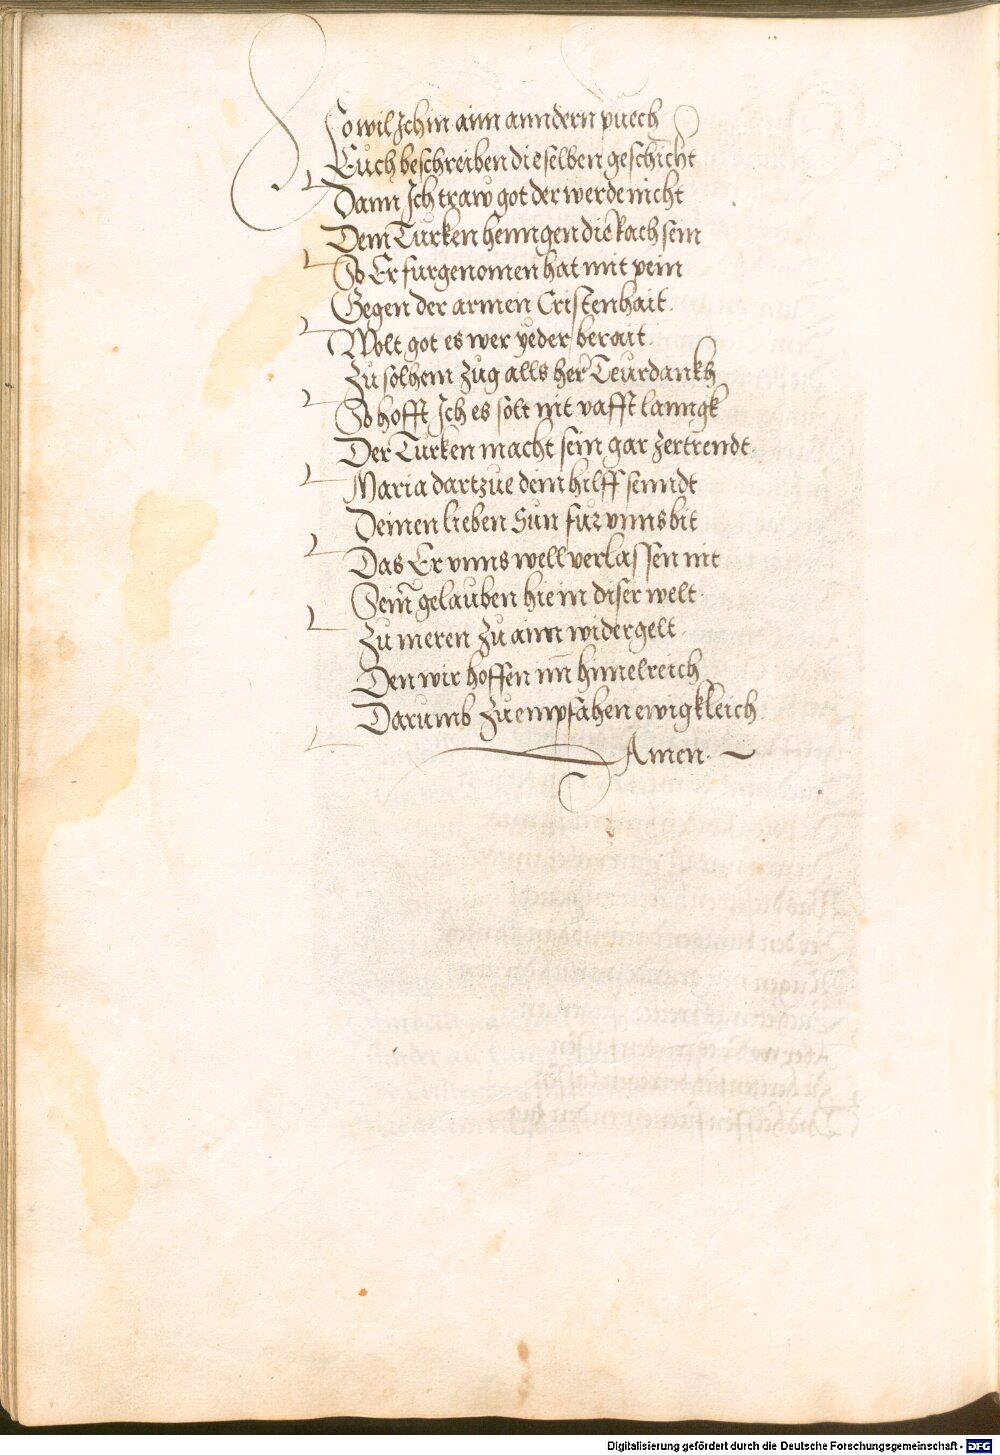 So wil Ich in ainn anndern puech
Euch beschreiben dieselben geschicht
Dann Ich traw got der werde nicht
Dem Turken henngen die Rach sein
So Er furgenomen hat mit pein
Gegen der armen Cristenhait.
Wolt got es wer yeder berait.
Zu solhem Zug alls her Teurdankh
So hofft Ich es solt nit vasst lanngk
Der Turken macht sein gar Zertrendt
Maria dartzue dein hilff senndt
Deinen lieben Sun fur vnns bit
Das Er vnns well verlassen nit
Sein̄ gelauben hie in diser welt
Zu meren Zu ainn widergelt.
Den wir hoffen im̄ himelreich
Darumb Zu empfahen ewigkleich
Amen.
Digitalisierung gefördert durch die Deutsche Forschungsgemeinschaft - DFG